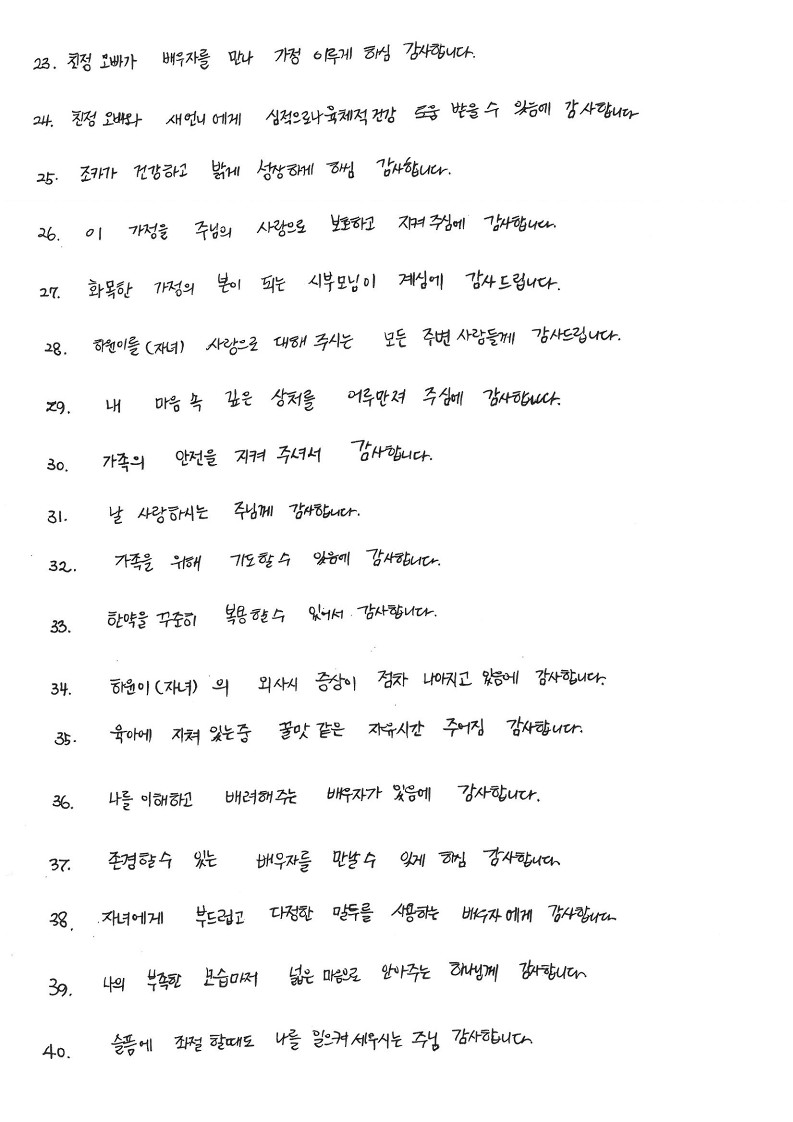 23. 친정 오빠가 배우자를 만나 가정 이루게 하심 감사합니다.
24. 친정 오빠와 새언니에게 심적으로나 육체적 건강 도움 받을 수 있음에 감사합니다
25. 조카가 건강하고 밝게 성장하게 하심 감사합니다.
26. 이 가정을 주님의 사랑으로 보호하고 지켜 주심에 감사합니다.
27. 화목한 가정의 본이 되는 시부모님이 계심에 감사드립니다.
28. 하윤이를 (자녀) 사랑으로 대해 주시는 모든 주변 사람들께 감사드립니다.
29. 내 마음 속 깊은 상처를 어루만져 주심에 감사합니다.
30. 가족의 안전을 지켜 주셔서 감사합니다.
31. 날 사랑하시는 주님께 감사합니다.
32. 가족을 위해 기도할 수 있음에 감사합니다.
33. 한약을 꾸준히 복용할 수 있어서 감사합니다.
34. 하윤이 (자녀) 의 외사시 증상이 점차 나아지고 있음에 감사합니다.
35. 육아에 지쳐 있는 중 꿀맛 같은 자유시간 주어짐 감사합니다.
36. 나를 이해하고 배려해주는 배우자가 있음에 감사합니다.
37. 존경할 수 있는 배우자를 만날 수 있게 하심 감사합니다
38. 자녀에게 부드럽고 다정한 말투를 사용하는 배우자에게 감사합니다
39. 나의 부족한 모습마저 넓은 마음으로 안아주는 하나님께 감사합니다
40. 슬픔에 좌절 할때도 나를 일으켜 세우시는 주님 감사합니다